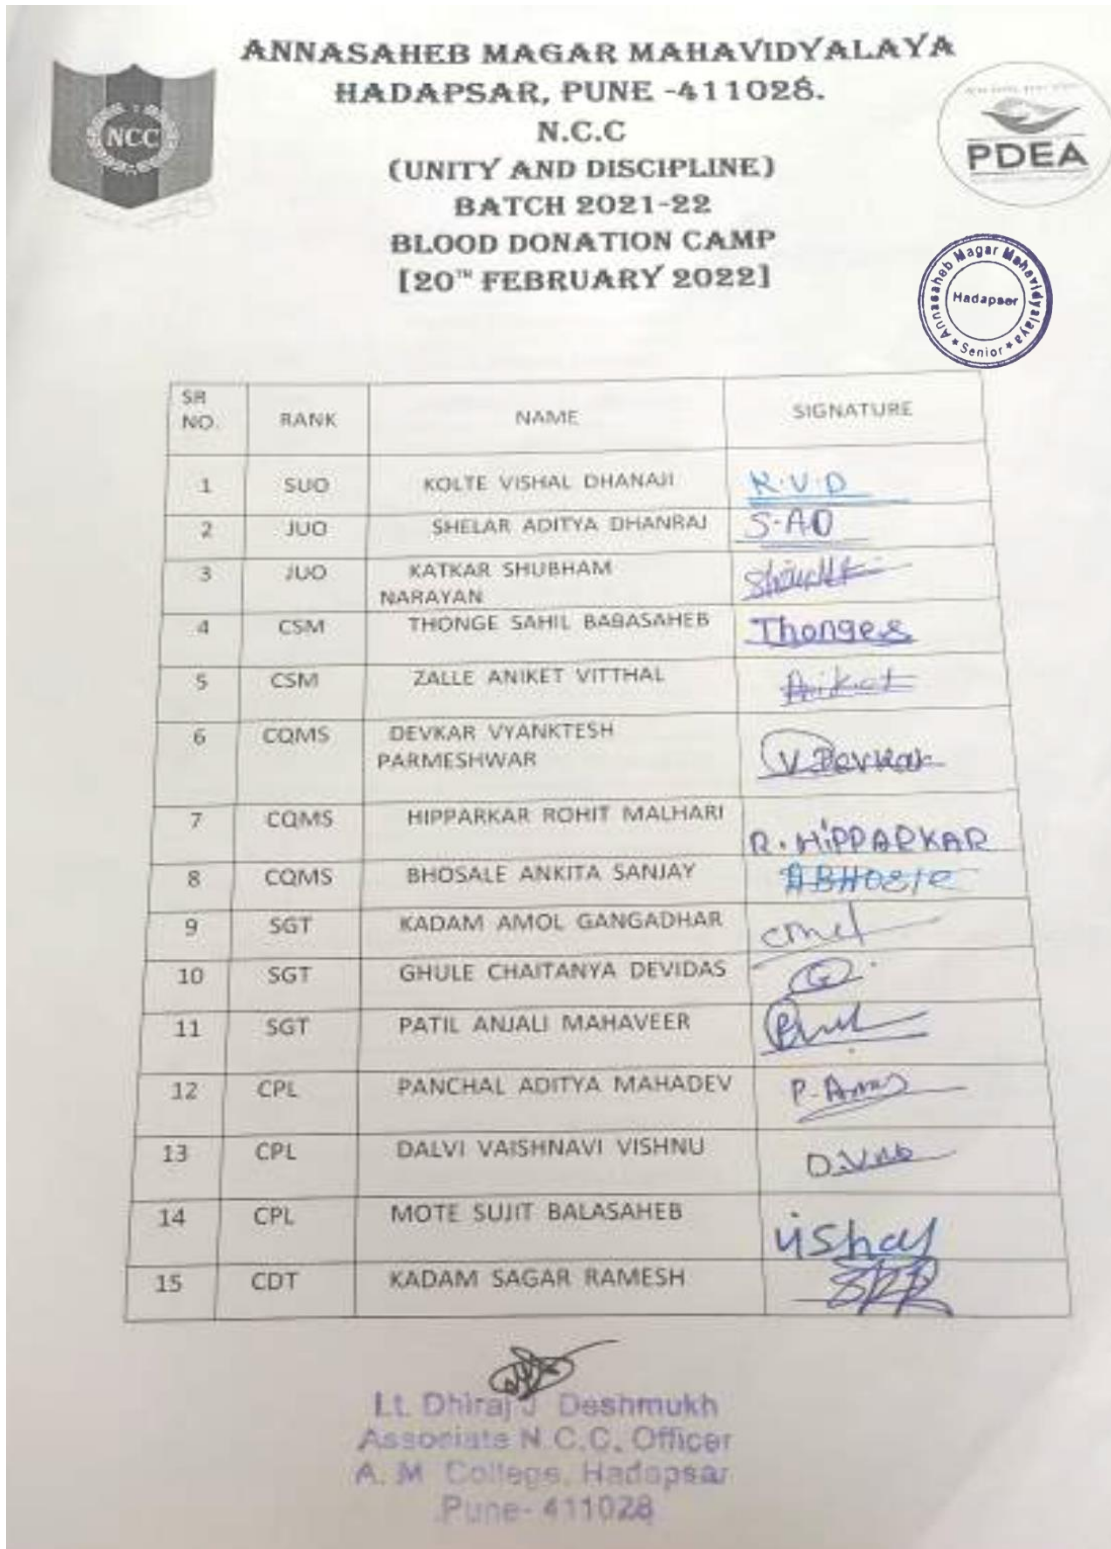 ANNASAHEB MAGAR MAHAVIDYALAYA
HADAPSAR, PUNE -411028.
N.C.C
(UNITY AND DISCIPLINE)
BATCH 2021-22
BLOOD DONATION CAMP
[20TH FEBRUARY 2022]
NCC
PDEA
Annasaheb Magar Mahavidyalaya
Hadapser
* Senior *
SR NO. RANK NAME SIGNATURE
1 SUO KOLTE VISHAL DHANAJI K.V.D
2 JUO SHELAR ADITYA DHANRAJ S-AD
3 JUO KATKAR SHUBHAM
NARAYAN
4 CSM THONGE SAHIL BABASAHEB Thonges
5 CSM ZALLE ANIKET VITTHAL Aniket
6 CQMS DEVKAR VYANKTESH
PARMESHWAR V. Devkar
7 CQMS HIPPARKAR ROHIT MALHARI R. HIPPARKAR
8 CQMS BHOSALE ANKITA SANJAY
9 SGT KADAM AMOL GANGADHAR
10 SGT GHULE CHAITANYA DEVIDAS
11 SGT PATIL ANJALI MAHAVEER
12 CPL PANCHAL ADITYA MAHADEV
13 CPL DALVI VAISHNAVI VISHNU
14 CPL MOTE SUJIT BALASAHEB
15 CDT KADAM SAGAR RAMESH
Lt. Dhiraj J Deshmukh
Associate N.C.C. Officer
A. M College, Hadapsar
Pune- 411028